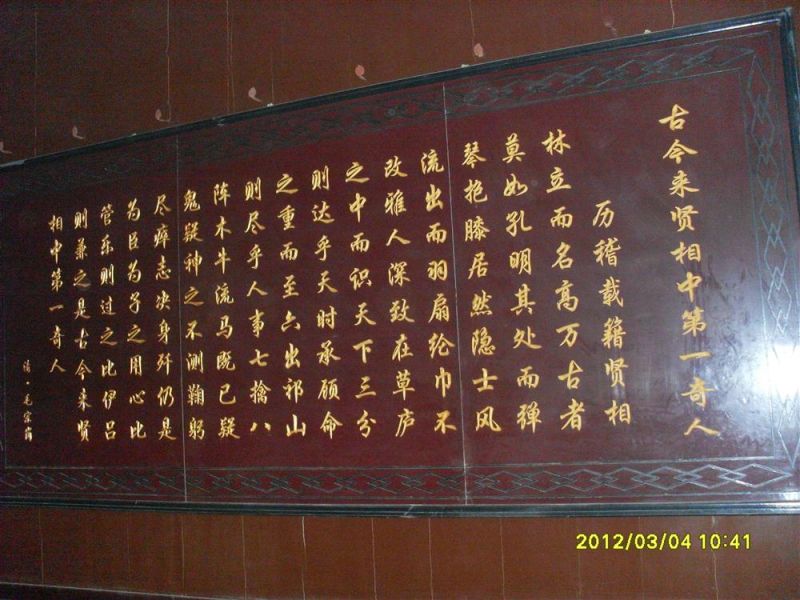 古今来贤相中第一奇人
历稽载籍贤相
林立而名高万古者
莫如孔明其处而弹
琴抱膝居然隐士风
流出而羽扇纶巾不
改雅人深致在草庐
之中而识天下三分
则达乎天时承顾命
之重而至六出祁山
则尽乎人事七擒八
阵木牛流马既已疑
鬼疑神之不测鞠躬
尽瘁志决身歼仍是
为臣为子之用心比
管乐则过之比伊吕
则兼之是古今来贤
相中第一奇人
清·毛宗岗
2012/03/04 10:41